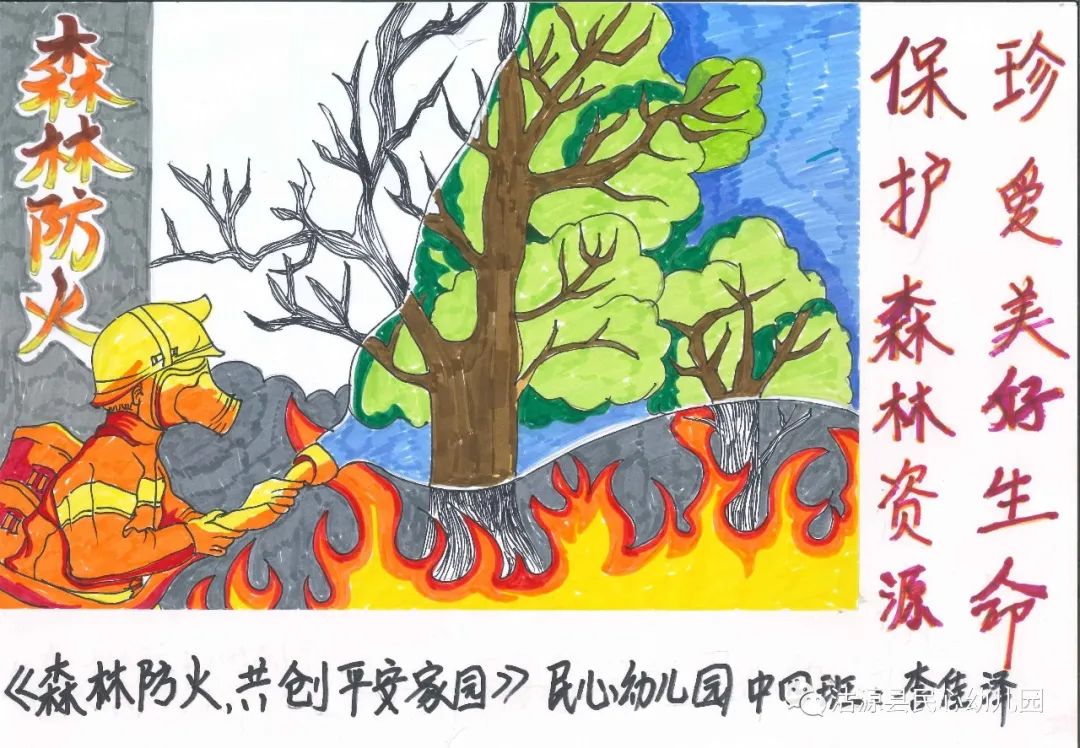 森林防火
珍爱美好生命
保护森林资源
《森林防火，共创平安家园》民心幼儿园 中四班 李佳泽
沽源县民心幼儿园